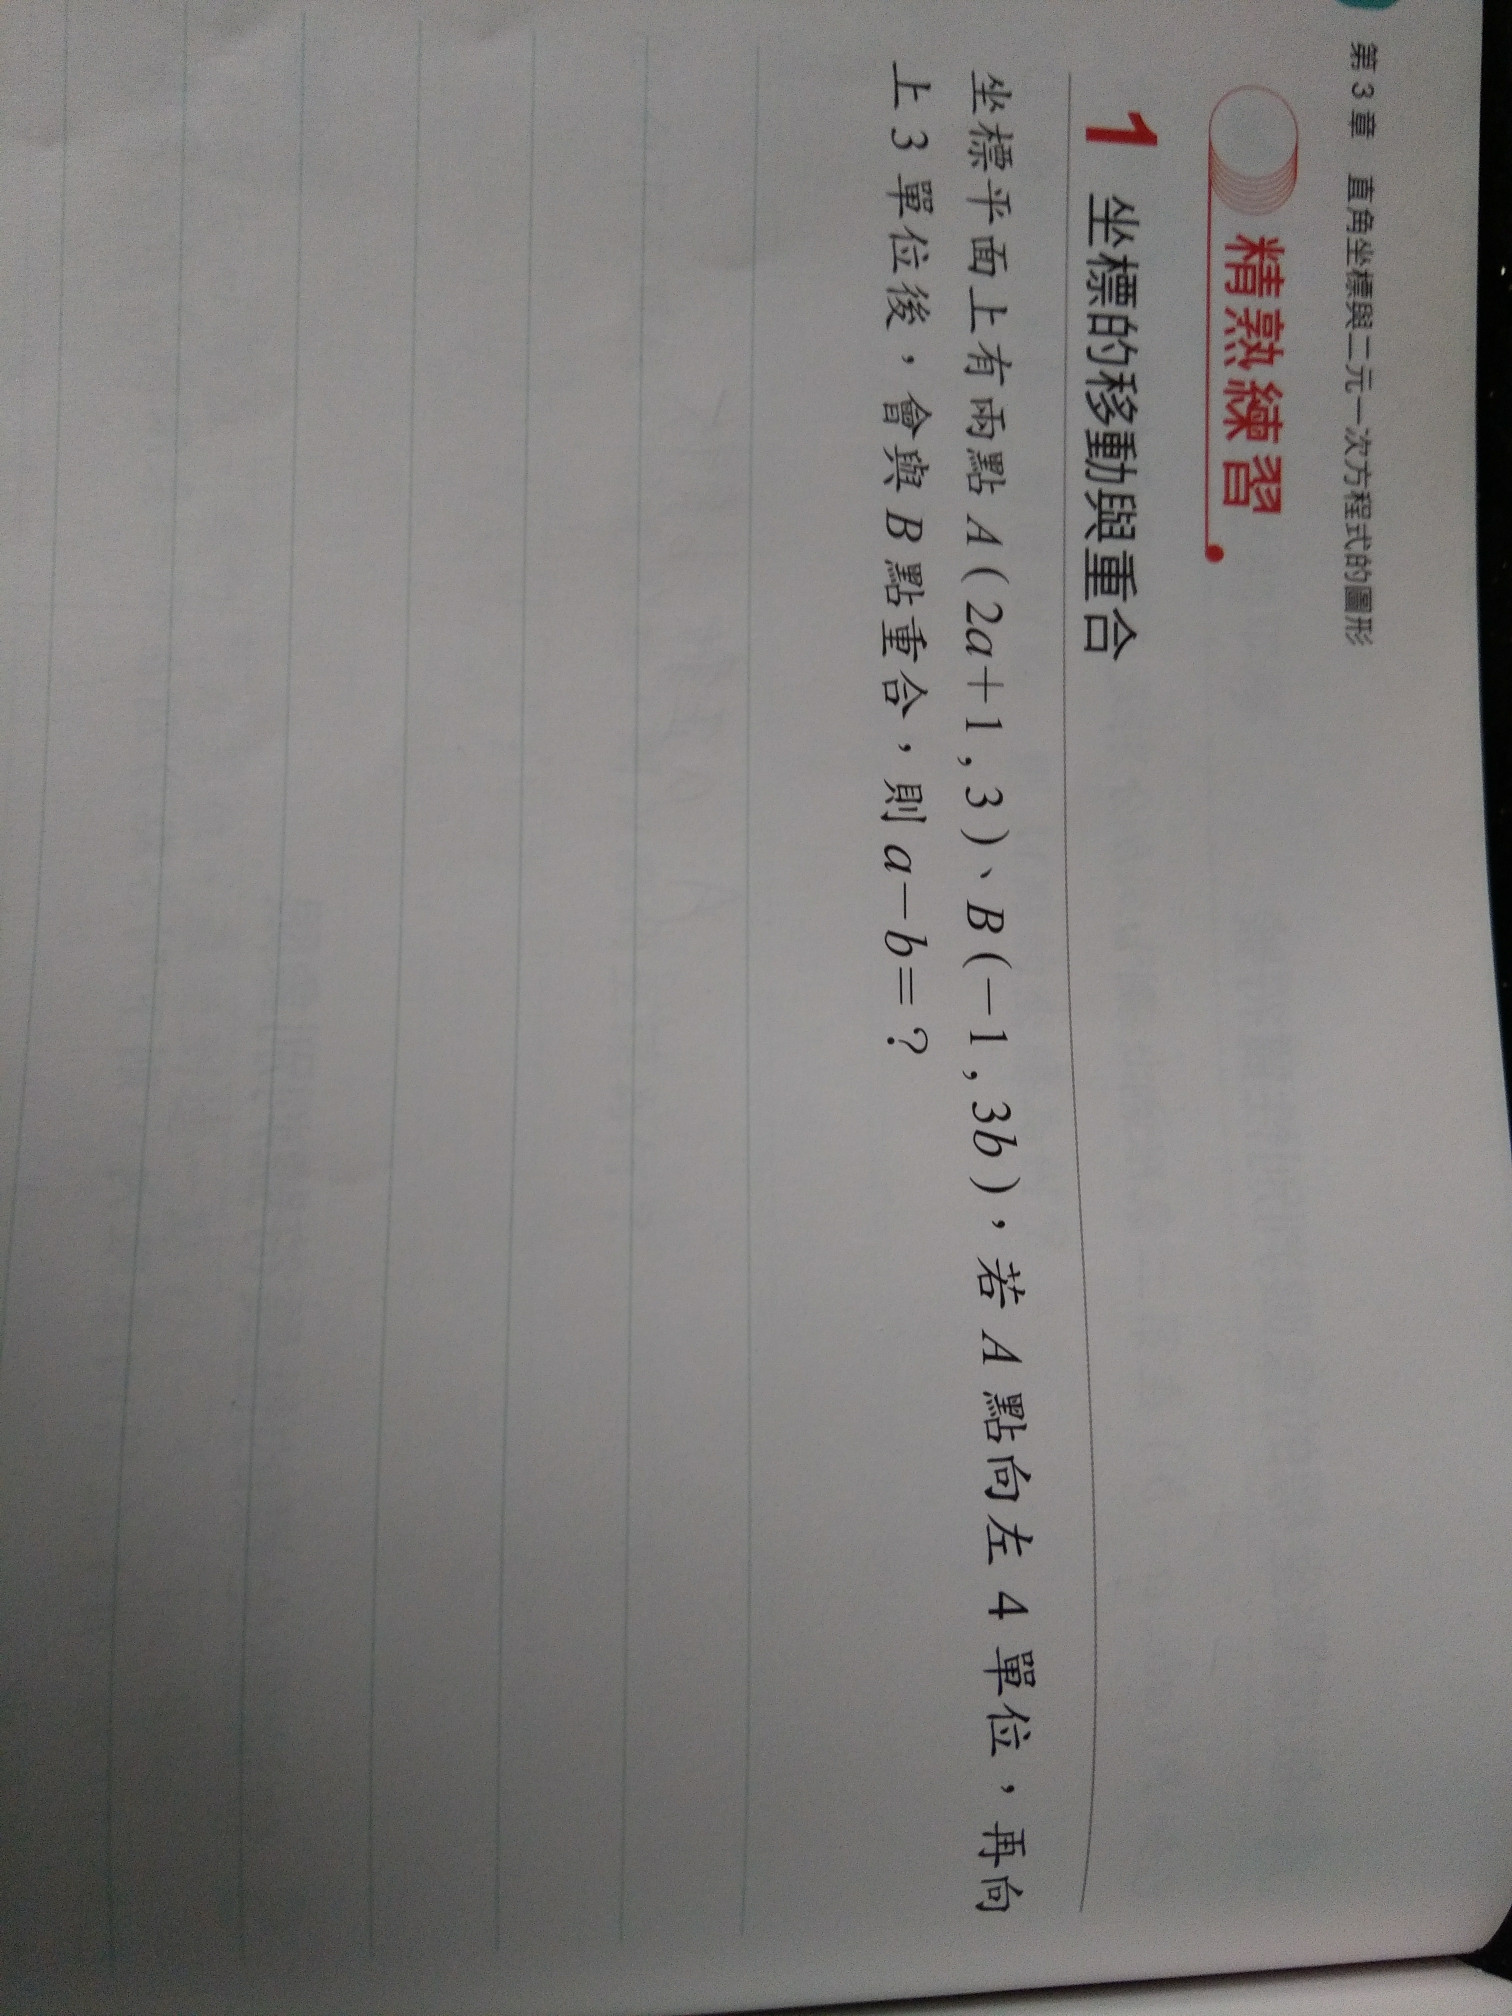 第 3 章　直角坐標與二元一次方程式的圖形
精熟練習
1 坐標的移動與重合
坐標平面上有兩點 A(2a+1,3)、B(-1,3b)，若 A 點向左 4 單位，再向
上 3 單位後，會與 B 點重合，則 a-b=？